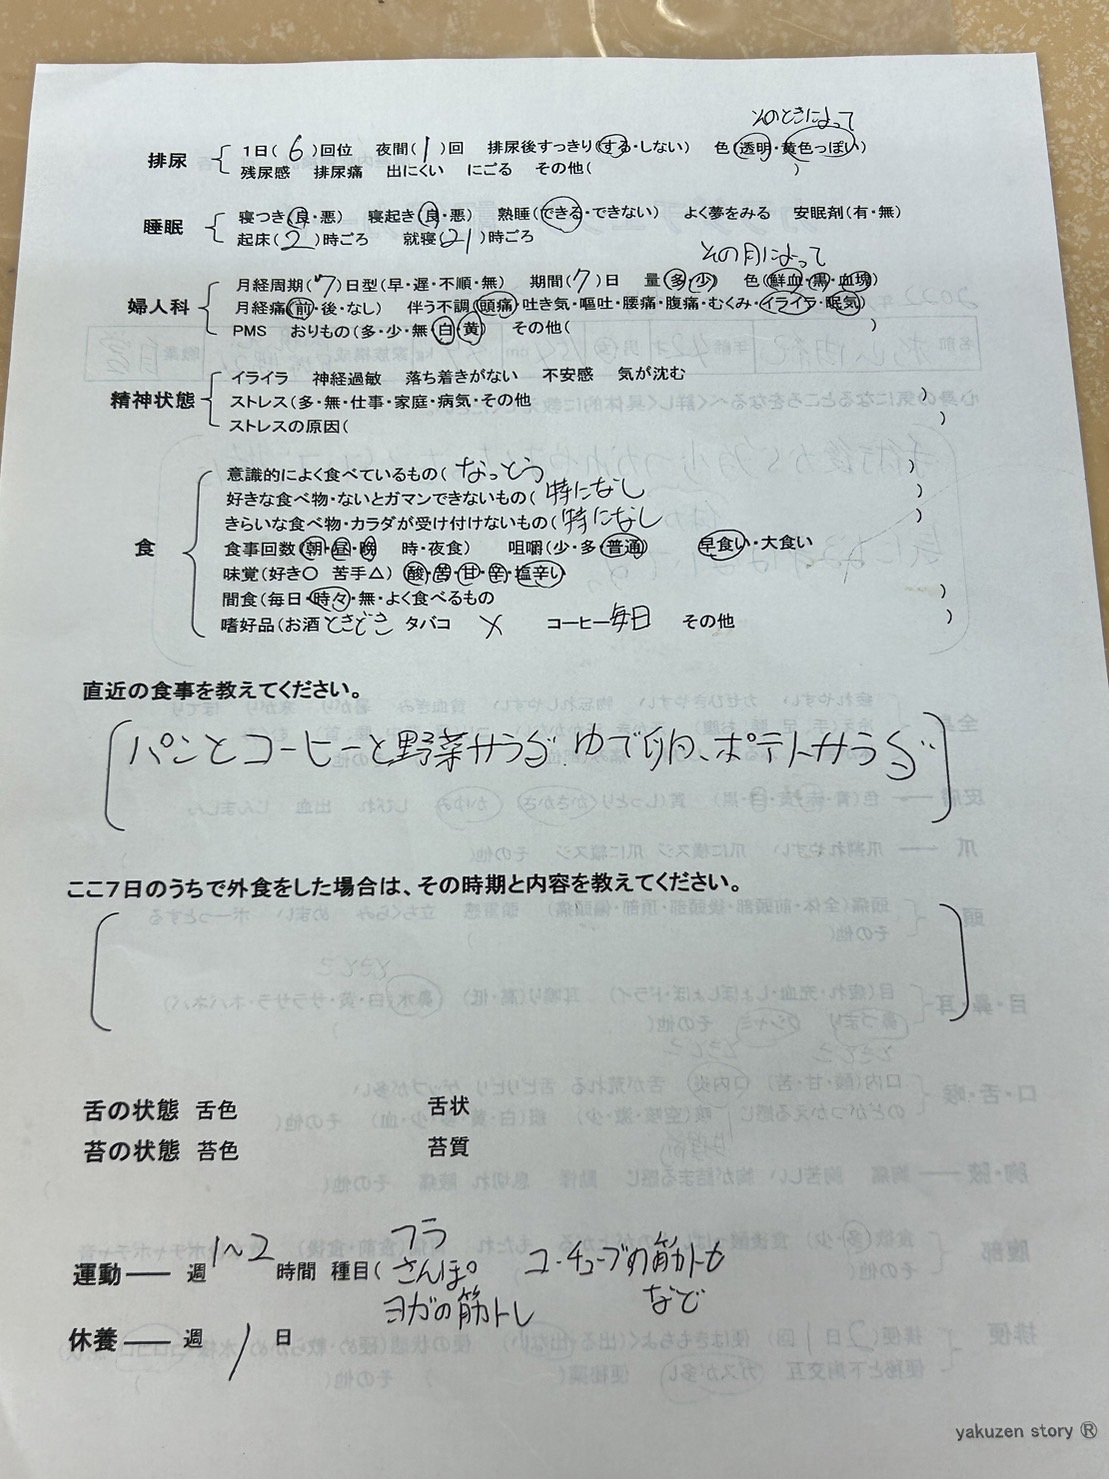 そのときによって
排尿 1日( 6 )回位 夜間( 1 )回 排尿後すっきり(する・しない) 色(透明・黄色っぽい)
残尿感 排尿痛 出にくい にごる その他( )
睡眠 寝つき(良・悪) 寝起き(良・悪) 熟睡(できる・できない) よく夢をみる 安眠剤(有・無)
起床( 2 )時ごろ 就寝( 21 )時ごろ
その月によって
婦人科 月経周期( 7 )日型(早・遅・不順・無) 期間( 7 )日 量(多・少) 色(鮮血・黒・血塊)
月経痛(前・後・なし) 伴う不調(頭痛・吐き気・嘔吐・腰痛・腹痛・むくみ・イライラ・眠気)
PMS おりもの(多・少・無・白・黄) その他( )
精神状態 イライラ 神経過敏 落ち着きがない 不安感 気が沈む
ストレス(多・無・仕事・家庭・病気・その他 )
ストレスの原因( )
食 意識的によく食べているもの( なっとう )
好きな食べ物・ないとガマンできないもの( 特になし )
きらいな食べ物・カラダが受け付けないもの( 特になし )
食事回数(朝・昼・晩 時・夜食) 咀嚼(少・多・普通) 早食い・大食い
味覚(好き○ 苦手△)(酸・苦・甘・辛・塩辛い
間食(毎日・時々・無・よく食べるもの )
嗜好品(お酒 ときどき タバコ × コーヒー 毎日 その他 )
直近の食事を教えてください。
パンとコーヒーと野菜サラダ、ゆで卵、ポテトサラダ
ここ7日のうちで外食をした場合は、その時期と内容を教えてください。
舌の状態 舌色 舌状
苔の状態 苔色 苔質
運動── 週 1~2 時間 種目( フラ
さんぽ
ヨガの筋トレ
ユーチューブの筋トレも
など
休養── 週 1 日
yakuzen story Ⓡ